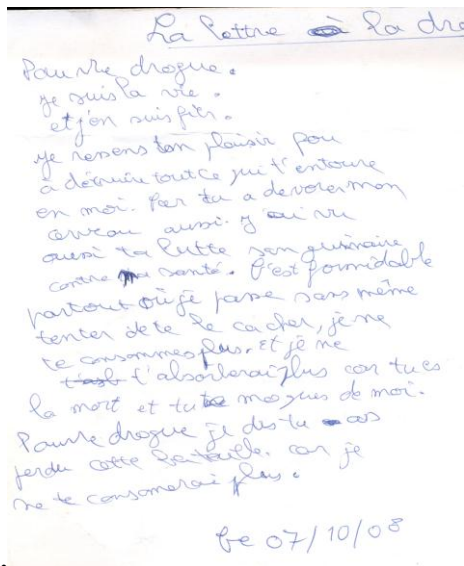 La lettre à la dro
Pauvre drogue.
je suis la vie.
et j'en suis fier.
je ressens ton plaisir fou
à détruire tout ce qui t'entoure
en moi. Par tu a dévorer mon
cerveau aussi. J'ai vu
aussi ta lutte sanguinaire
contre ma santé. C'est formidable
partout où je passe sans même
tenter de te le cacher, je ne
te consommes plus. Et je ne
t'absorberai plus car tu es
la mort et tu te moques de moi.
Pauvre drogue je dis tu as
perdu cette bataille. car je
ne te consomerai plus.
Le 07/10/08